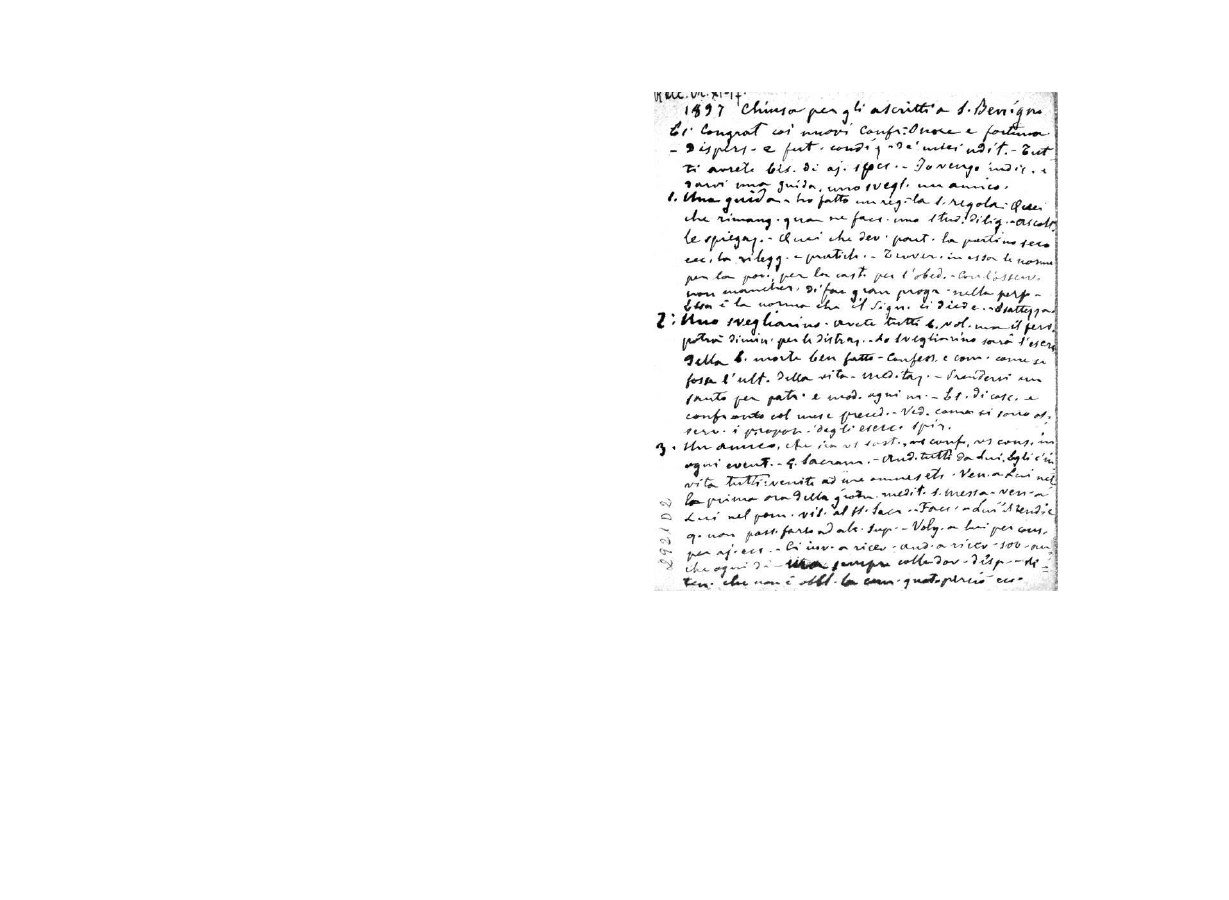 1897 Chiusa per gli ascritti a S. Benigno
Congrat coi nuovi confr: Onore e fortuna
- Dispers. e fut. condiz - de' miei udit. - Tut
ti avrete bis. di aj. spec. - Io vengo indic. e
darvi una guida, uno svegl. un amico.
1. Una guida - ho fatto un reg. la S. regola. Quei
che rimang. quan ne facc. uno stud. dilig. - ascolt.
le spiegaz. - Quei che dev. part. la portino seco
ecc, la rilegg. e pratich. - Trover. in essa le norme
per la pov. per la cast. per l'obed. - Coll'osserv.
non mancher. di far gran progr. nella perf. -
Essa è la norma che il Sign. ci diede.
2: Uno svegliarino - avete tutti b. vol. ma il ferv.
potrà dimin. per le distraz. - Lo svegliarino sarà l'eserc
della b. morte ben fatto - Confess. e com. come se
fosse l'ult. della vita - meditaz. - Prendervi un
santo per patr. e mod. ogni m. - Es. di cosc. e
confronto col mese preced. - Ved. come si sono os.
serv. i propon. degli eserc. spir.
3. Un amico, che vi sost., vi conf, vi cons. in
ogni event. - G. Sacram. - And. tutti da Lui, Egli c'in
vita tutti: venite ad me omnes etc - Ven. a Lui nel
la prima ora della giorn. medit. s. messa - ven. a
Lui nel pom. vis. al SS. Sacr. - Facc. a Lui
q. non poss. farlo ad alc. sup. - Volg. a lui per cons.
per aj. ecc. - Ci inv. a ricev. - and. a ricev. sov. an
che ogni dì - ma sempre colle dov. disp. -
che non è obbl. la com. quot. perciò ecc.
2921D2